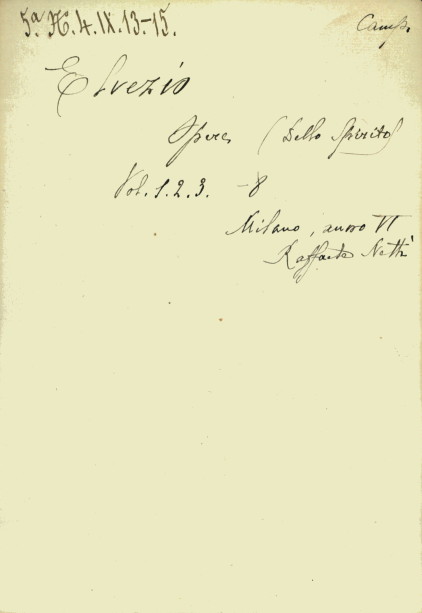 5ª H. 4. IX. 13-15.
Camp.
Elvezio
Opere (Dello Spirito)
Vol. 1. 2. 3. - 8
Milano, anno VI
Raffaele Netti